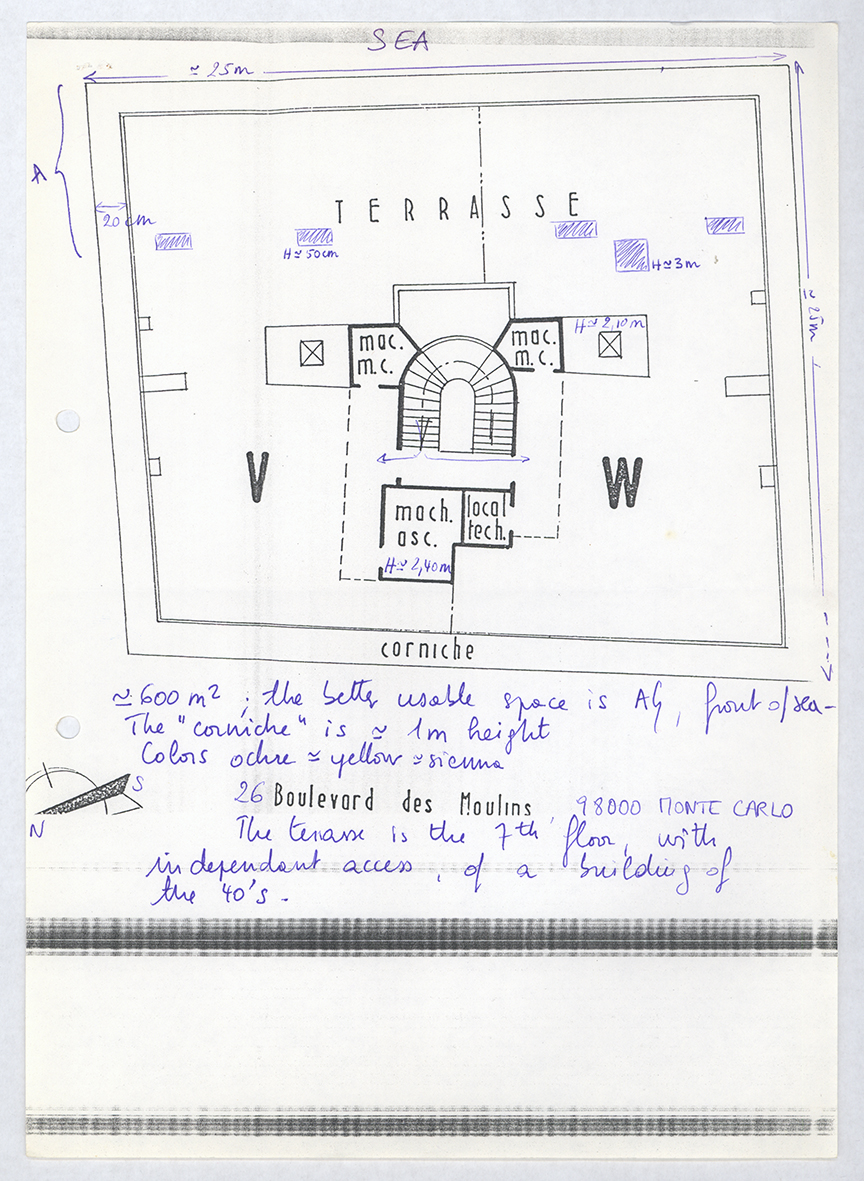 SEA
≃ 25m
A
20 cm
TERRASSE
H≃50cm
H≃3m
≃ 25m
H≃2,10m
mac.
m.c.
mac.
m.c.
V
W
mach.
asc.
local
tech.
H≃2,40m
corniche
≃ 600 m² ; the better usable space is A, front of sea-
The "corniche" is ≃ 1m height
Colors ochre ≃ yellow ≃ sienna
S
N
26 Boulevard des Moulins, 98000 MONTE CARLO
The terasse is the 7th floor, with
independant access, of a building of
the 40's.